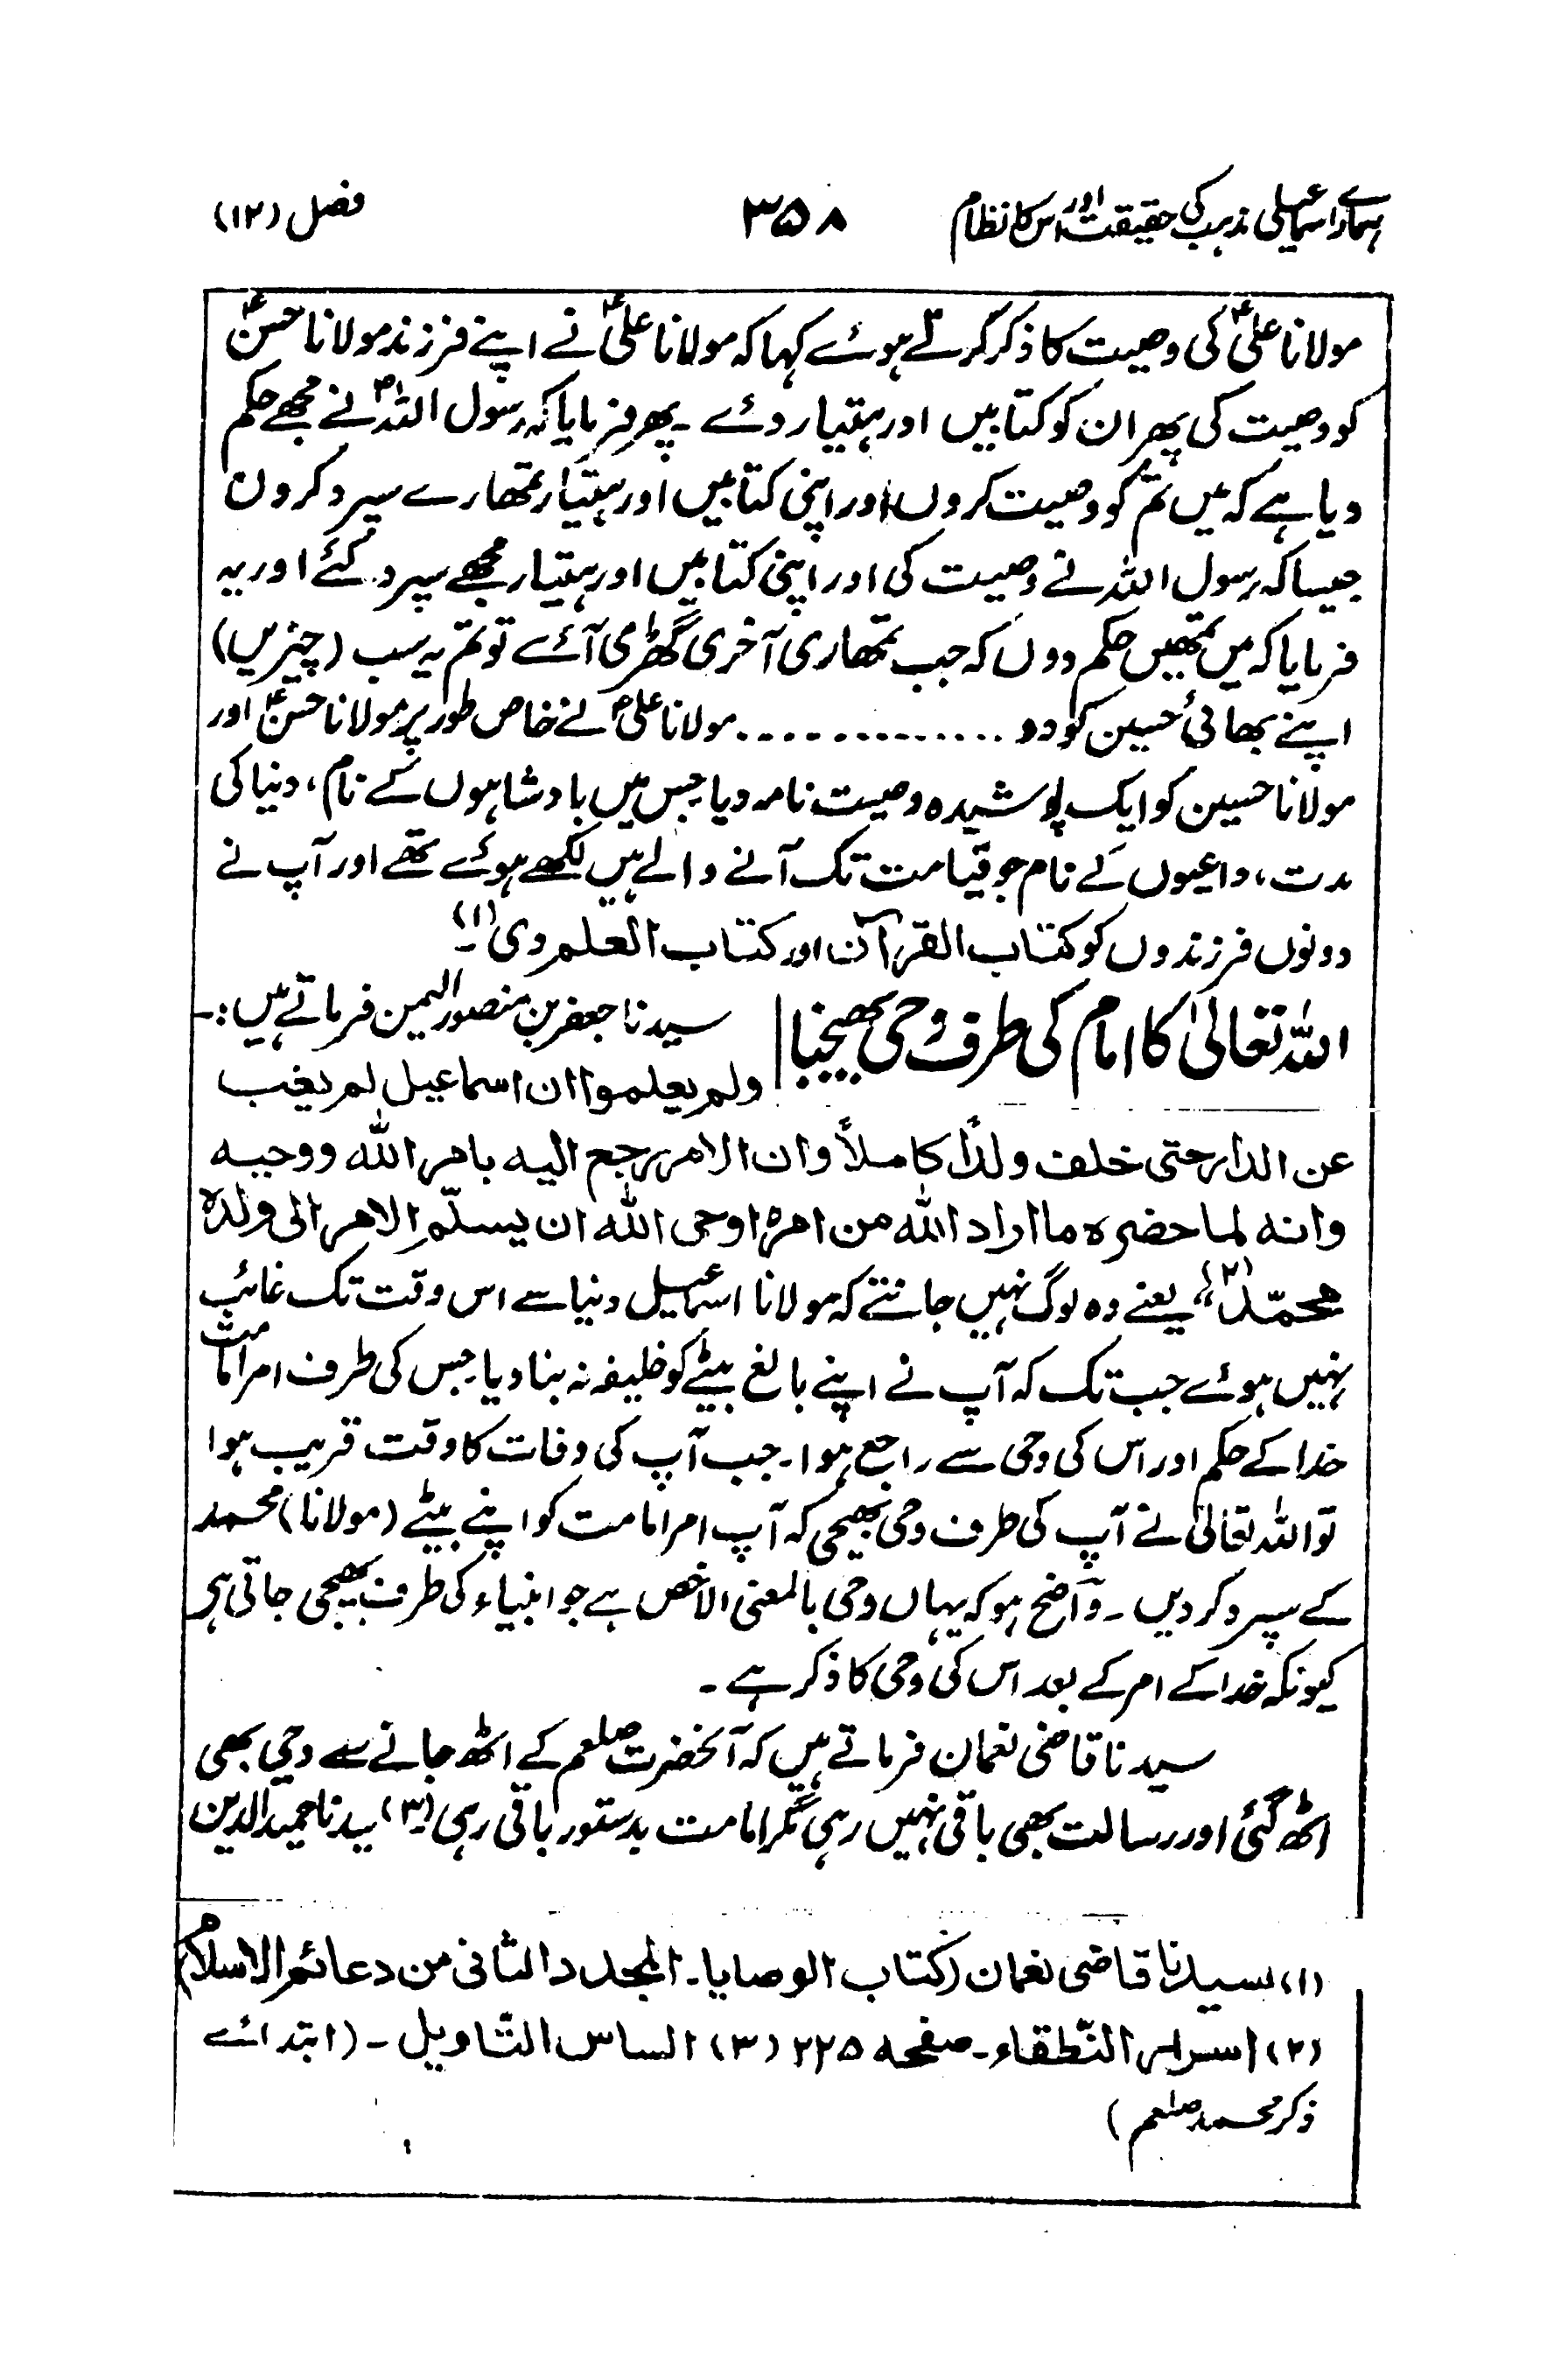 ہمارے اسماعیلی مذہب کی حقیقت اور اس کا نظام ۳۵۸ فصل (۱۲)
مولانا علیؑ کی وصیت کا ذکر کرتے ہوئے کہا کہ مولانا علیؑ نے اپنے فرزند مولانا حسنؑ
کو وصیت کی پھر ان کو کتابیں اور ہتیار دئے ۔ پھر فرمایا کہ رسول اللہؐ نے مجھے حکم
دیا ہے کہ میں تم کو وصیت کروں اور اپنی کتابیں اور ہتیار تمھارے سپرد کروں
جیسا کہ رسول اللہ نے وصیت کی اور اپنی کتابیں اور ہتیار مجھے سپرد کئے اور یہ
فرمایا کہ میں تمھیں حکم دوں کہ جب تمھاری آخری گھڑی آئے تو تم یہ سب (چیزیں)
اپنے بھائی حسین کو دو ............. مولانا علیؑ نے خاص طور پر مولانا حسنؑ اور
مولانا حسین کو ایک پوشیدہ وصیت نامہ دیا جس میں بادشاہوں کے نام، دنیا کی
مدت، داعیوں کے نام جو قیامت تک آنے والے ہیں لکھے ہوئے تھے اور آپ نے
دونوں فرزندوں کو کتاب القرآن اور کتاب العلم دی (۱)۔
اللہ تعالیٰ کا امام کی طرف وحی بھیجنا | سیدنا جعفر بن منصور الیمن فرماتے ہیں :۔
ولم یعلموا ان اسماعیل لم یغب
عن الدار حتی خلف ولدًا کاملاً وان الامر رجع الیہ بامر اللہ ووحیہ
وانہ لما حضرہ ما اراد اللہ من امرہ اوحی اللہ ان یسلّم الامر الی ولدہ
محمّد (۲)" یعنے وہ لوگ نہیں جانتے کہ مولانا اسماعیل دنیا سے اس وقت تک غائب
نہیں ہوئے جب تک کہ آپ نے اپنے بالغ بیٹے کو خلیفہ نہ بنا دیا جس کی طرف امر امامت
خدا کے حکم اور اس کی وحی سے راجع ہوا۔ جب آپ کی وفات کا وقت قریب ہوا
تو اللہ تعالیٰ نے آپ کی طرف وحی بھیجی کہ آپ امر امامت کو اپنے بیٹے (مولانا) محمد
کے سپرد کر دیں ۔ واضح ہو کہ یہاں وحی بالمعنی الاخص ہے جو انبیاء کی طرف بھیجی جاتی ہے
کیونکہ خدا کے امر کے بعد اس کی وحی کا ذکر ہے ۔
سیدنا قاضی نعمان فرماتے ہیں کہ آنحضرت صلعم کے اٹھ جانے سے وحی بھی
اٹھ گئی اور رسالت بھی باقی نہیں رہی مگر امامت بدستور باقی رہی (۳)۔ سیدنا حمید الدین
(۱) سیدنا قاضی نعمان (کتاب الوصایا۔ المجلد الثانی من دعائم الاسلام)
(۲) اسرار النّطقاء۔ صفحہ ۲۲۵ (۳) اساس التاویل ۔ (ابتدائے
ذکر محمد صلعم)